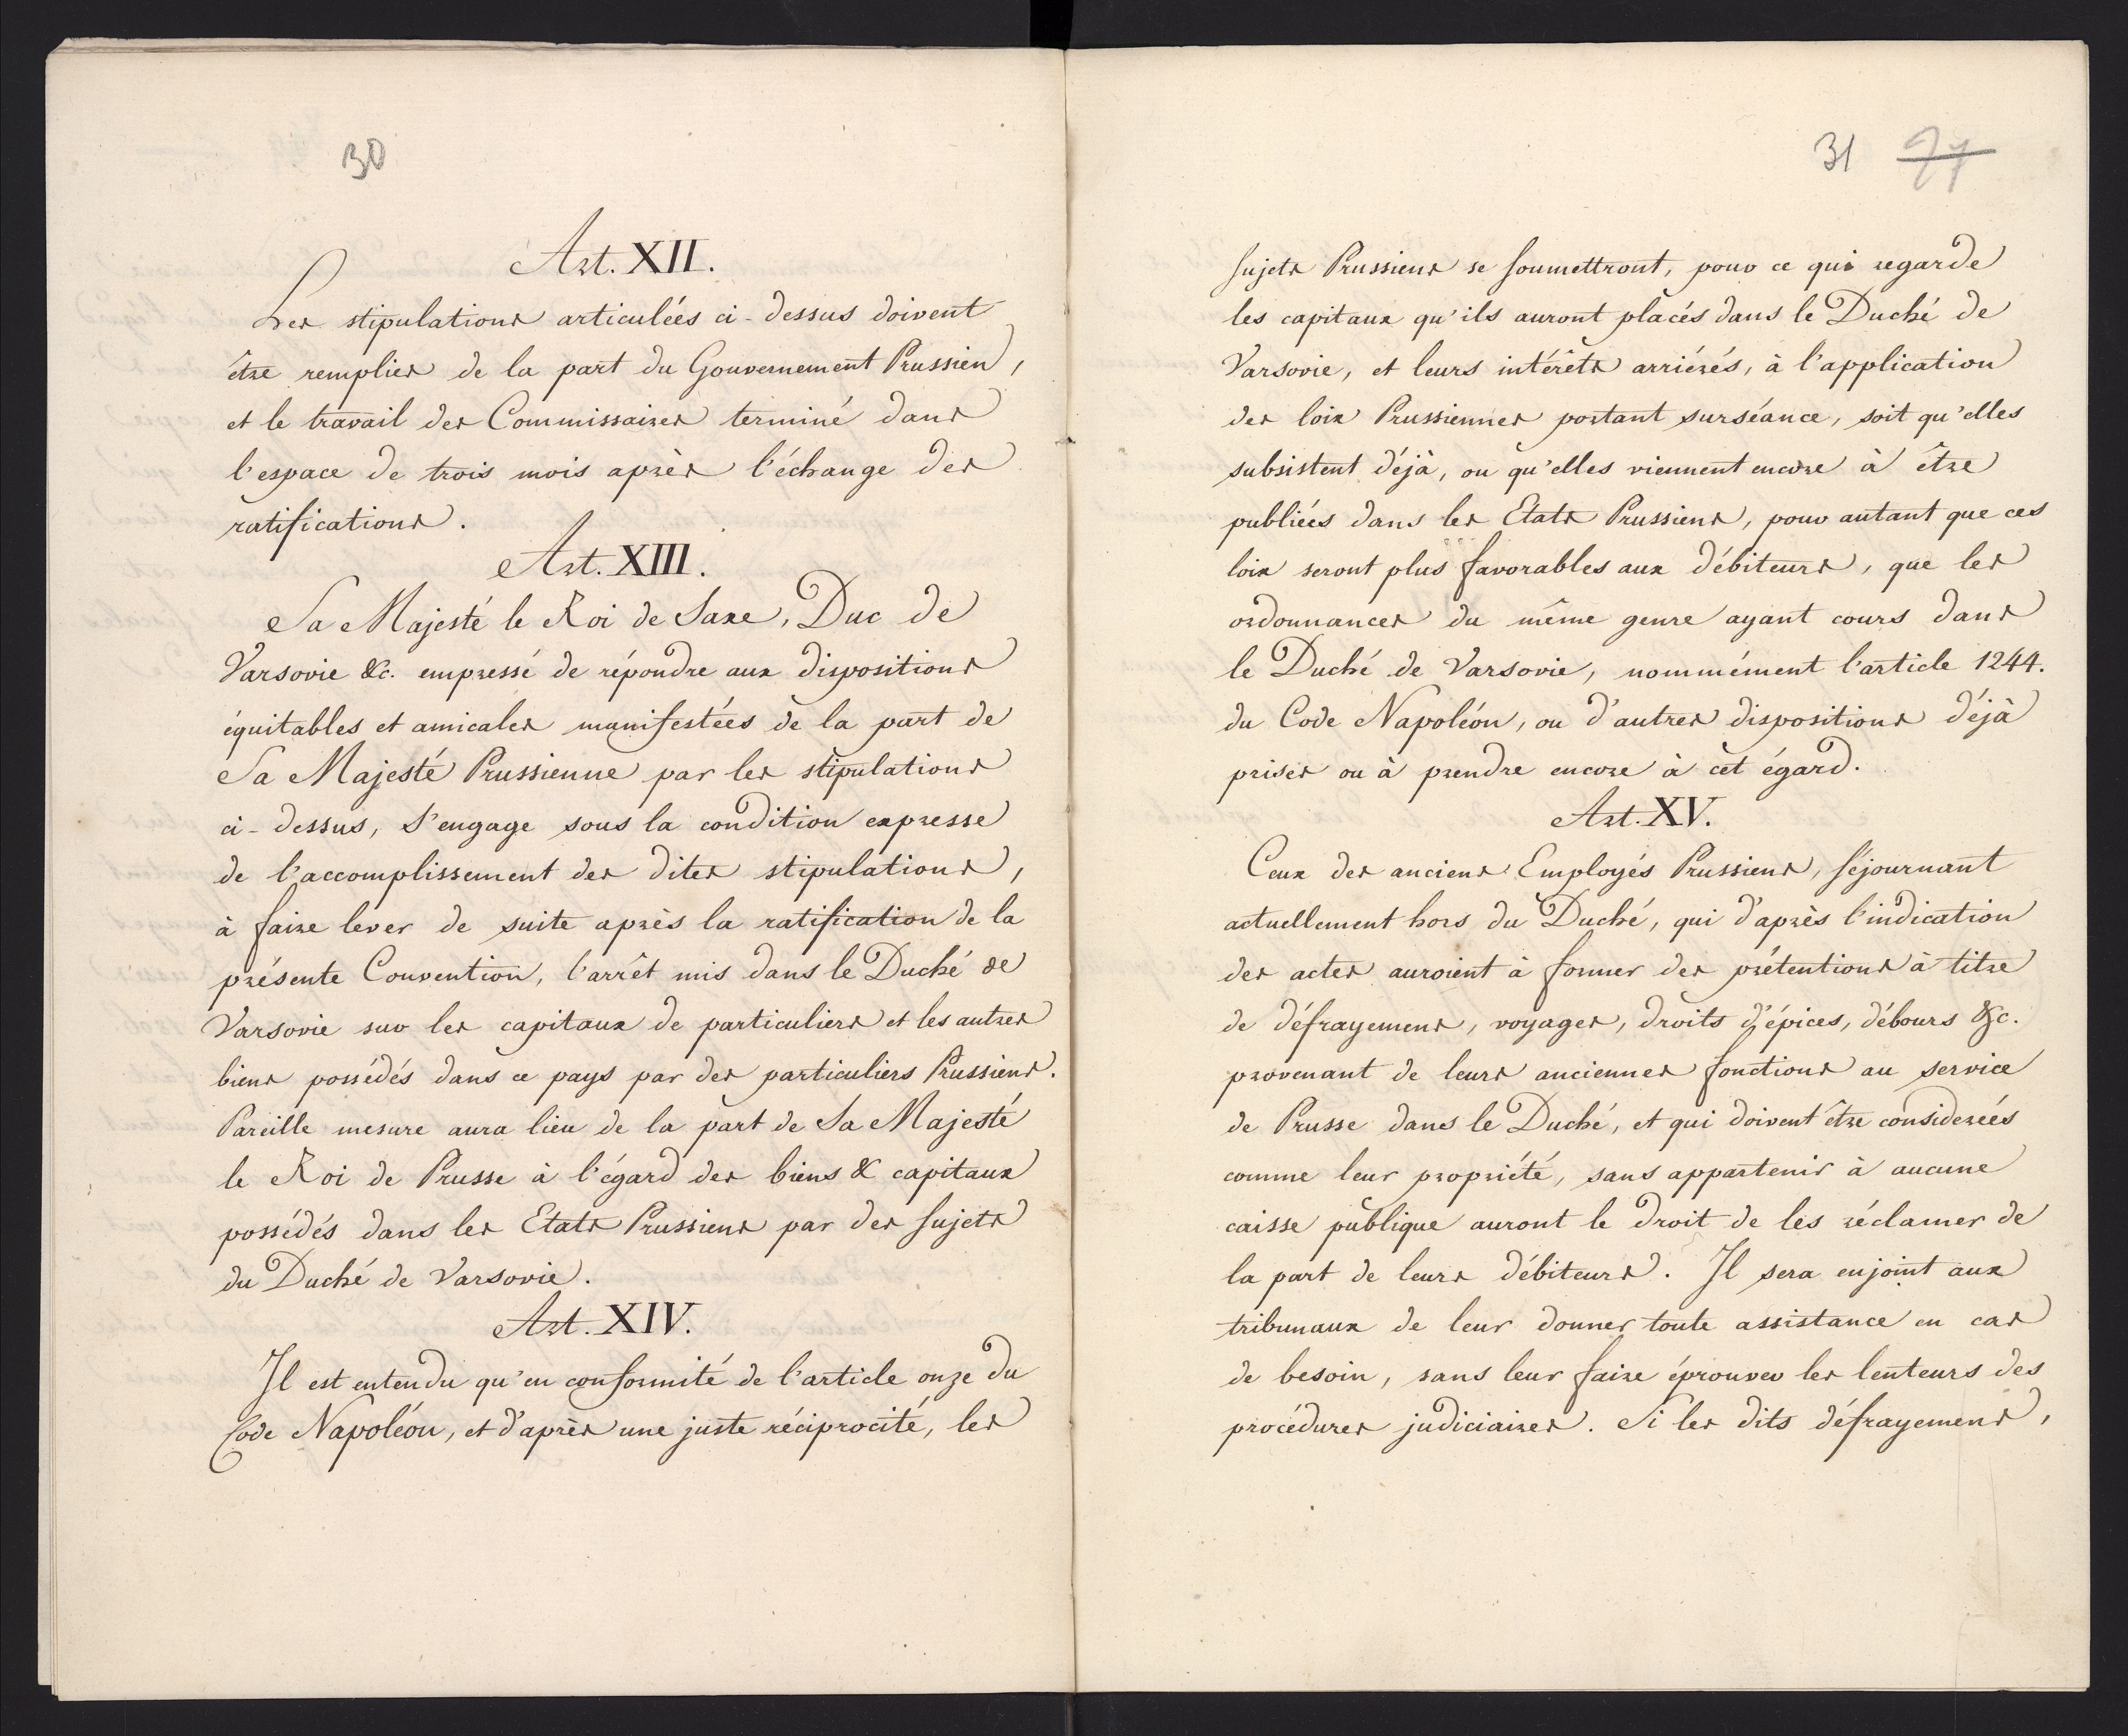 30
Art. XII.
Les stipulations articuleés ci-dessus doivent
être remplies de la part du Gouvernement Prussien,
et le travail des Commissaires terminé dans
l'espace de trois mois après l'échange des
ratifications.
Art. XIII.
Sa Majesté le Roi de Saxe, Duc de
Varsovie &c. empressé de répondre aux dispositions
équitables et amicales manifestées de la part de
Sa Majesté Prussienne par les stipulations
ci-dessus, s'engage sous la condition expresse
de l'accomplissement des dites stipulations,
à faire lever de suite après la ratification de la
présente Convention, l'arrêt mis dans le Duché de
Varsovie sur les capitaux de particuliers et les autres
biens possédés dans ce pays par des particuliers Prussiens.
Pareille mesure aura lieu de la part de Sa Majesté
le Roi de Prusse à l'égard des biens & capitaux
possédés dans les Etats Prussiens par des sujets
du Duché de Varsovie.
Art. XIV.
Il est entendu qu'en conformité de l'article onze du
Code Napoléon, et d'après une juste réciprocité, les
31 77
sujets Prussiens se soumettront, pour ce qui regarde
les capitaux qu'ils auront placés dans le Duché de
Varsovie, et leurs intérêts arriérés, à l'application
des loix Prussiennes portant surséance, soit qu'elles
subsistent déjà, ou qu'elles viennent encore à être
publiées dans les Etats Prussiens, pour autant que ces
loix seront plus favorables aux débiteurs, que les
ordonnances du même genre ayant cours dans
le Duché de Varsovie, nommément l'article 1244.
du Code Napoléon, ou d'autres dispositions déjà
prises ou à prendre encore à cet égard.
Art. XV.
Ceux des anciens Employés Prussiens, séjournant
actuellement hors du Duché, qui d'après l'indication
des actes auroient à former des prétentions à titre
de défrayemens, voyages, droits d'épices, débours &c.
provenant de leurs anciennes fonctions au service
de Prusse dans le Duché, et qui doivent être considereés
comme leur propriété, sans appartenir à aucune
caisse publique auront le droit de les réclamer de
la part de leurs débiteurs. Il sera enjoint aux
tribunaux de leur donner toute assistance en cas
de besoin, sans leur faire éprouver les lenteurs des
procédures judiciaires. Si les dits défrayemens,